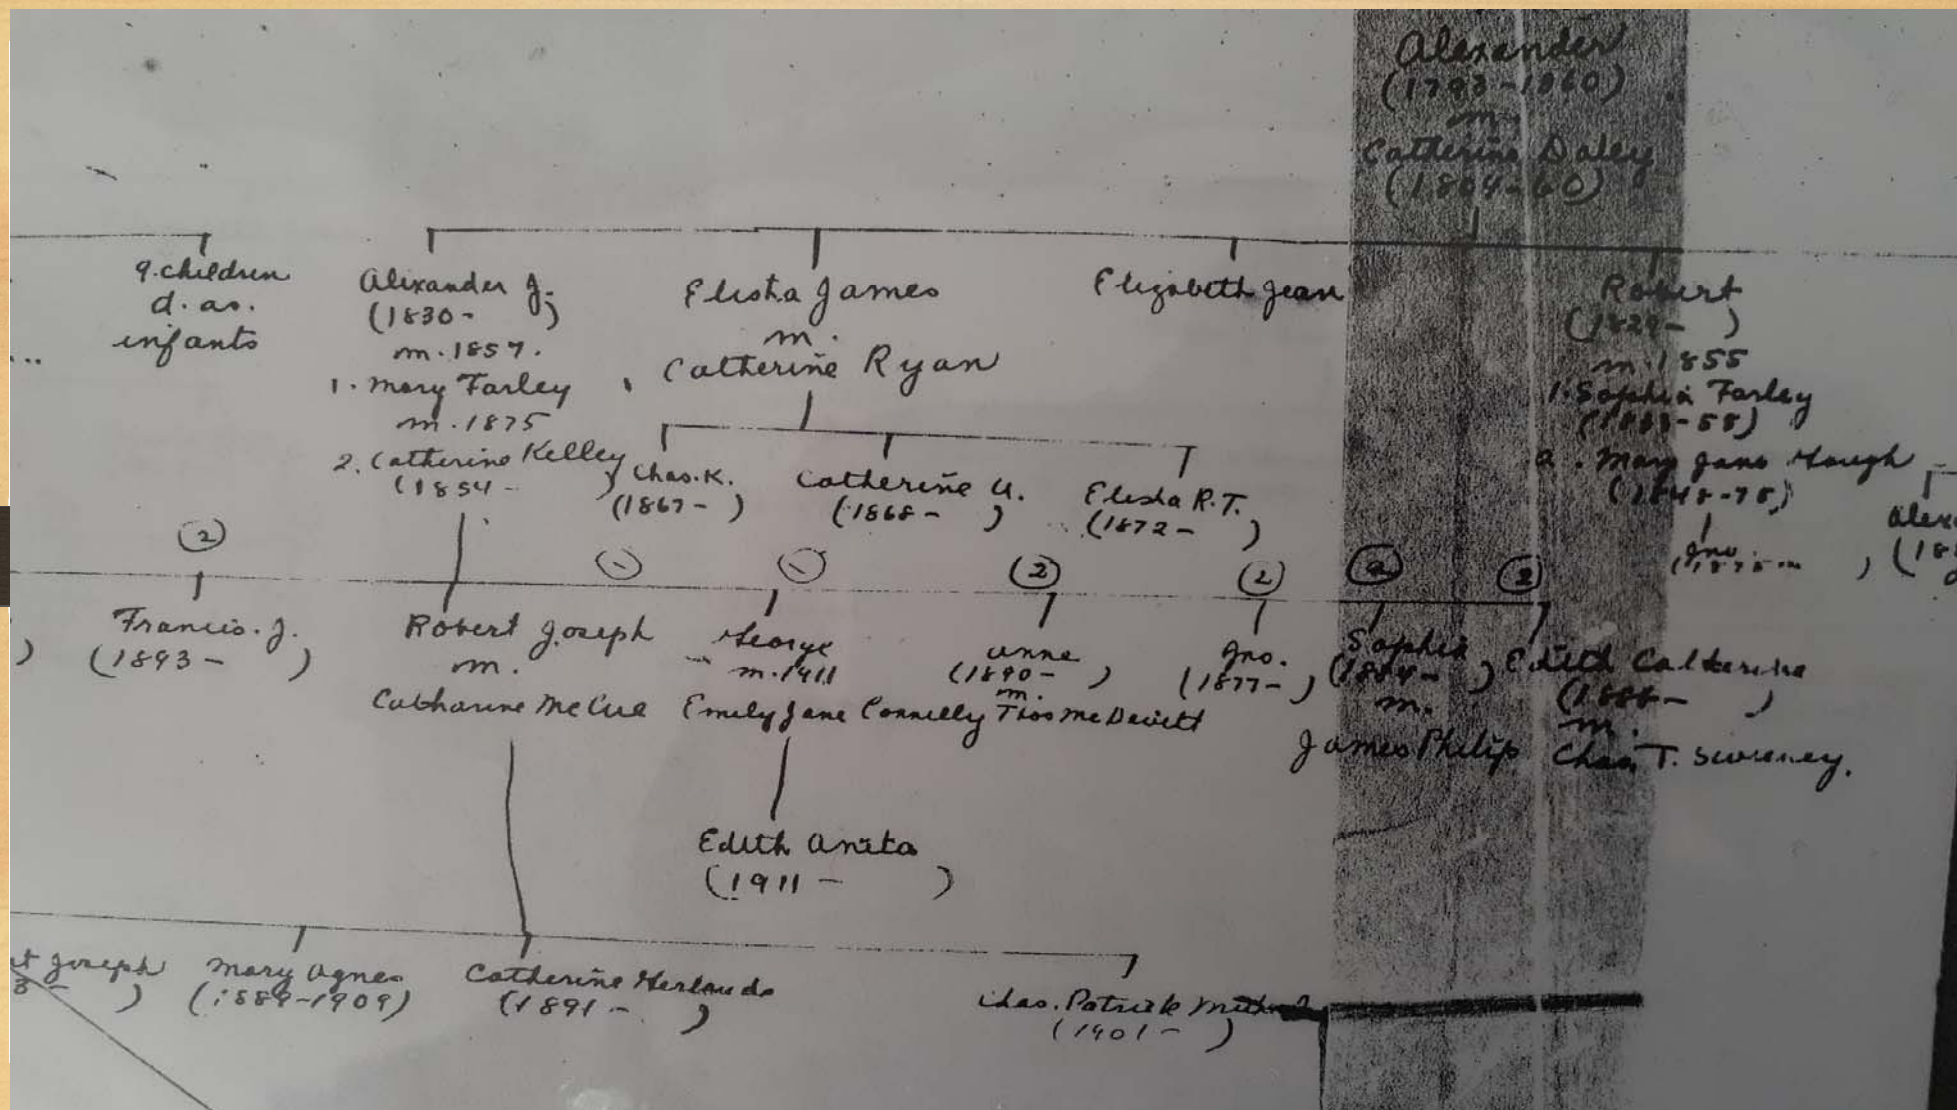 Alexander
(1793-1860)
m.
Catherine Daley
(1804-60)
9. children
d. as.
infants
...
Alexander J.
(1830- )
m. 1857.
1. Mary Farley
m. 1875
2. Catherine Kelley
(1854- )
Elisha James
m.
Catherine Ryan
Elizabeth Jean
Robert
(1829- )
m. 1855
1. Sophia Farley
-58)
2. Mary Jane Hough
(1848-78)
Jno.
Chas. K.
(1867- )
Catherine U.
(1868- )
Elisha R.T.
(1872- )
2
2
2
2
2
Francis. J.
(1893- )
Robert Joseph
m.
Catharine McCue
George
m. 1911
Emily Jane Connelly
Anne
(1890- )
m.
Thos McDevitt
Jno.
(1877- )
Sophia
(1884- )
m.
James Philip
Edith Catherine
(1888- )
m.
Chas. T. Sweeney.
Edith Anita
(1911- )
Joseph
Mary Agnes
(1889-1909)
Catherine
(1891- )
Chas. Patrick
(1901- )